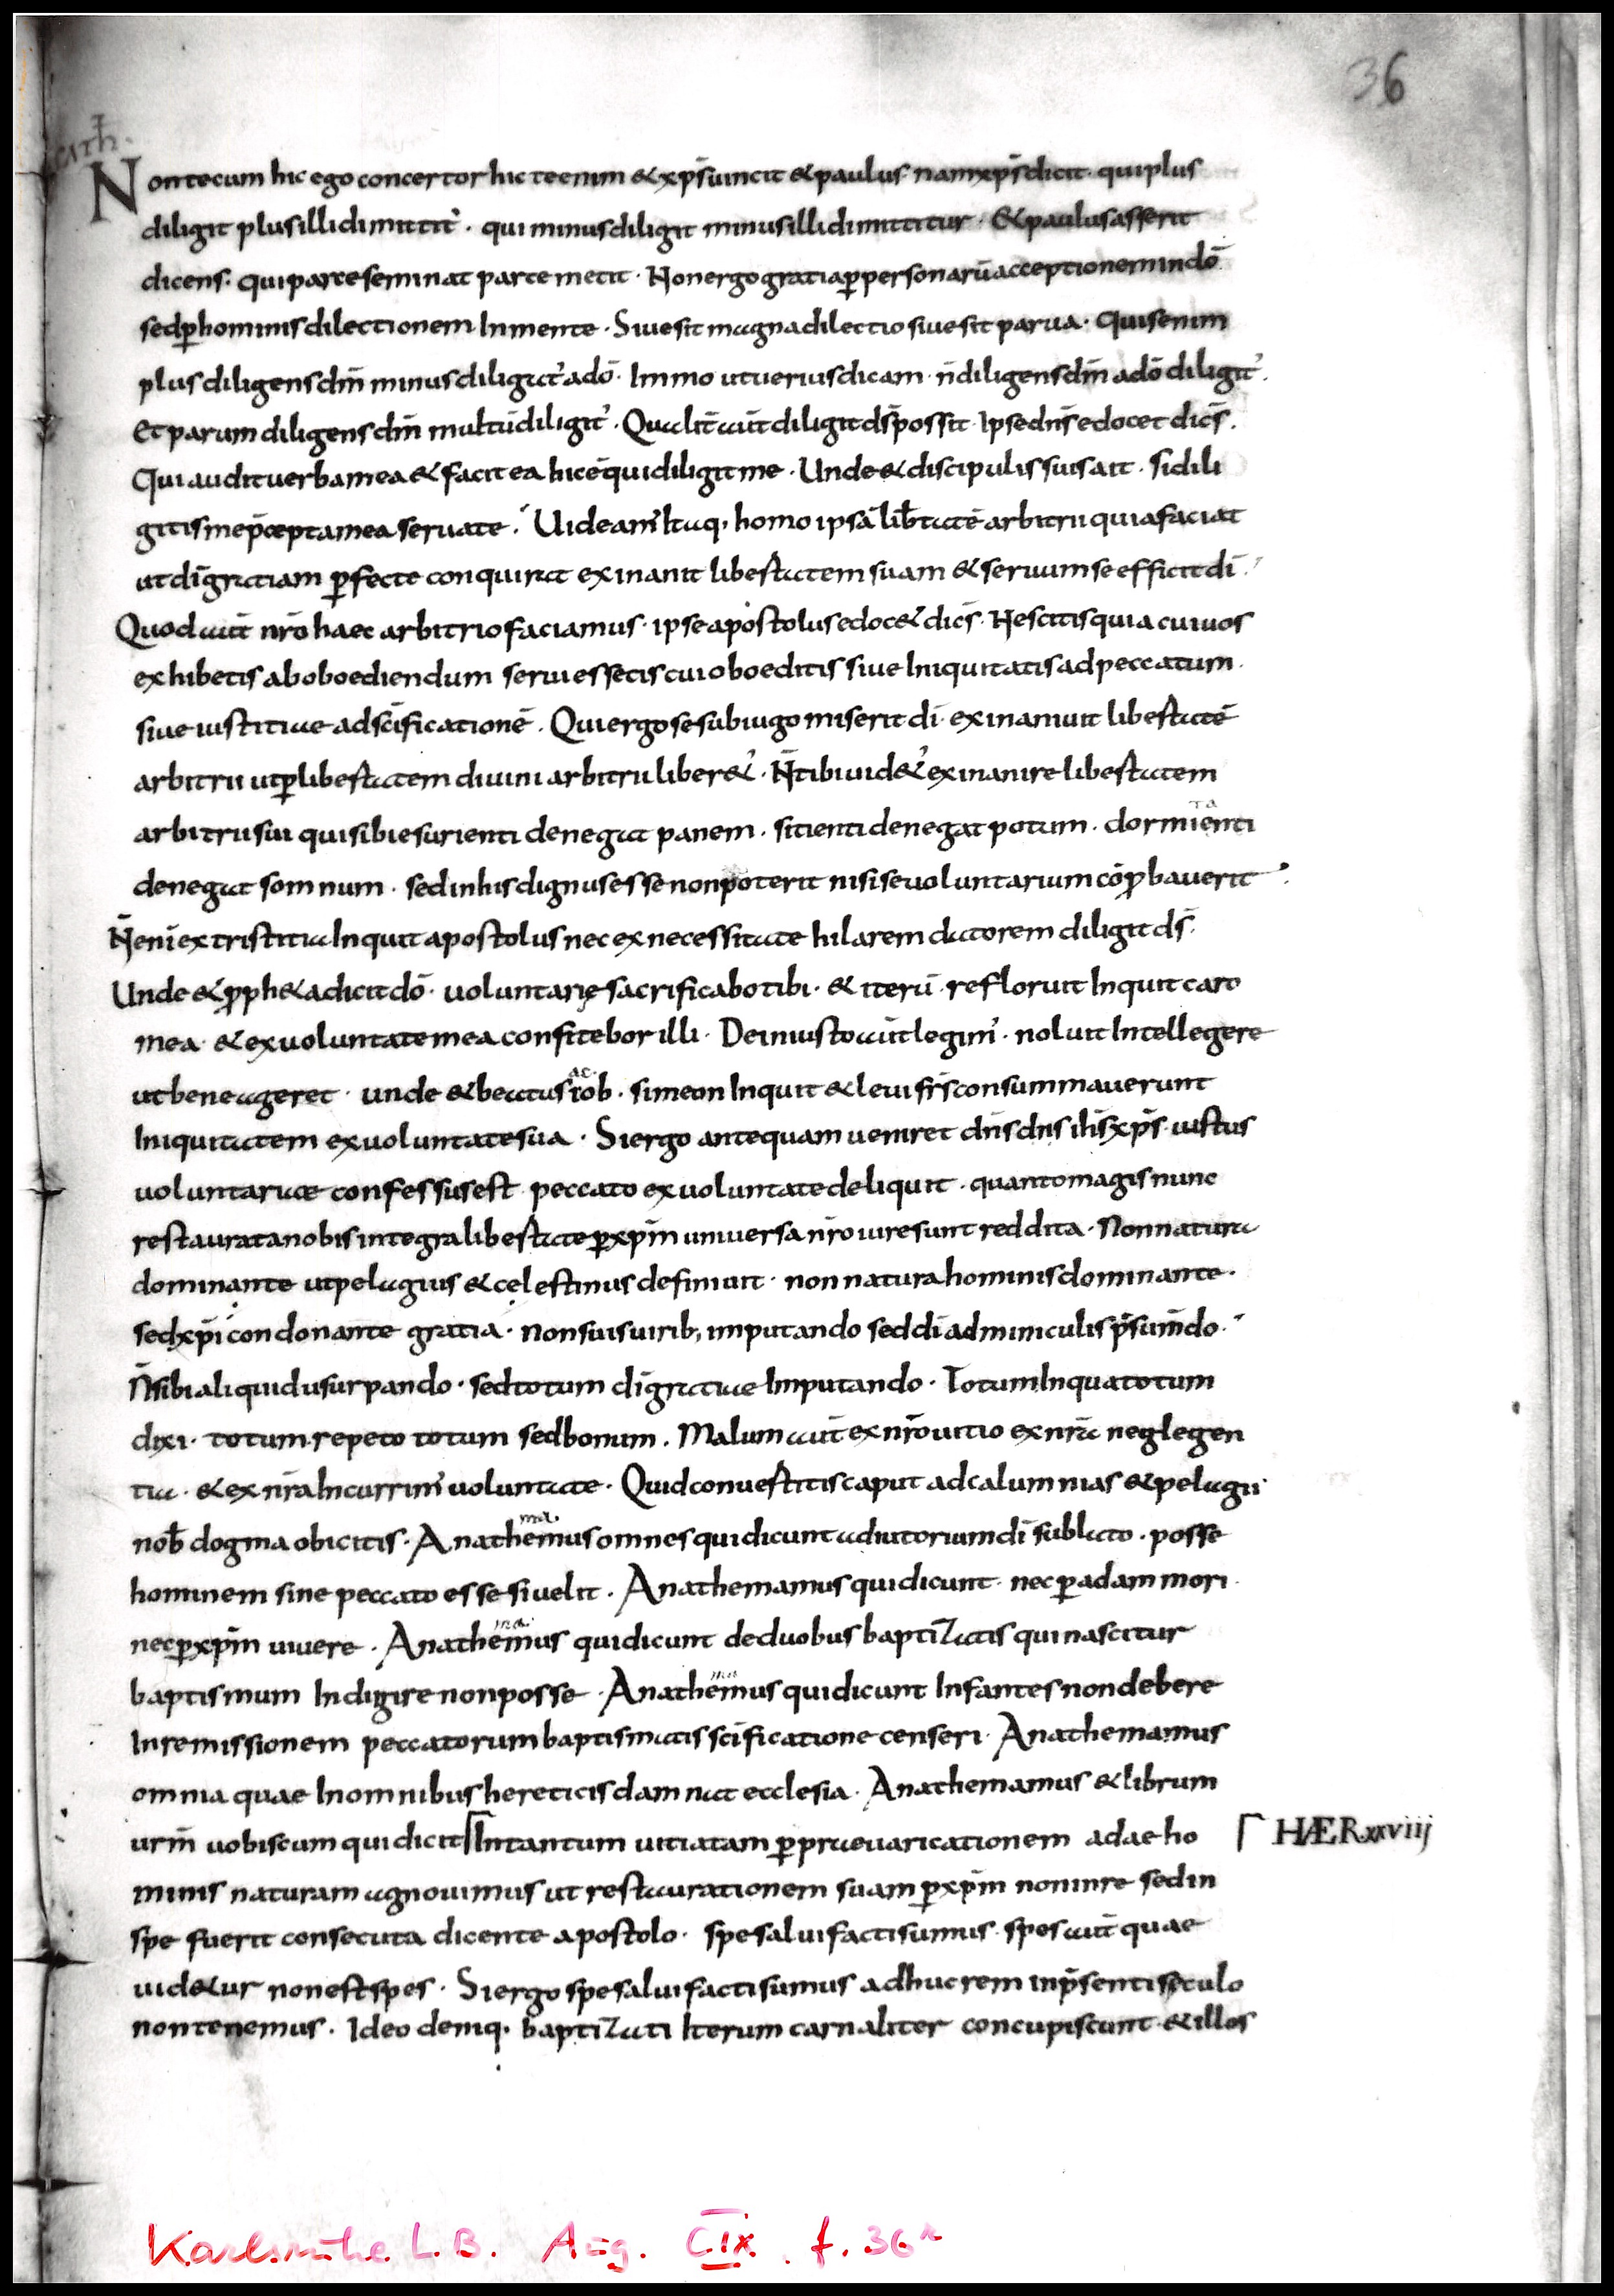 36
cath.
Non tecum hic ego concertor hic tecum & xp̄s uincit & paulus nam xp̄s dicit· qui plus
diligit plus illi dimittit̉· qui minus diligit minus illi dimittitur· & paulus asserit
dicens· qui parce seminat parce metit· Non ergo gratia ꝑ personarū acceptionem in dō
sed ꝑ hominis dilectionem In mente· Siue sit magna dilectio siue sit parua· Quis enim
plus diligens dm̄ minus diligit̉ a dō· Immo ut uerius dicam· n̄ diligens dm̄ a dō diligit̉.
Et parum diligens dm̄ multū diligit̉· Qualit̄ aūt diligi ds̄ possit· Ipse dn̄s edocet dicē̄s.
Qui audit uerba mea & facit ea hic ē qui diligit me· Unde & discipulis suis ait· si dili
gitis me p̄cepta mea seruate· Uideam̉ Itaq· homo ipsā lib̄tatē arbitrii quia faciat
ut dī gratiam ꝑfecte conquirat exinanit libertatem suam & seruum se efficit dī·
Quod aūt nr̄o haec arbitrio faciamus· ipse apostolus edoc& dicē̄s· Nescitis quia cui uos
exhibetis ab oboediendum serui essetis cui oboeditis siue Iniquitatis ad peccatum.
siue iustitiae ad scīficationē· Qui ergo se sub iugo miserit dī· exinaniuit libertatē
arbitrii ut ꝑ libertatem diuini arbitrii liber&̉· N̄ tibi uid&̉ exinanire libertatem
arbitrii sui qui sibi esurienti denegat panem· sitienti denegat potum· dormienti
ta
denegat somnum· sed in his dignus esse non poterit nisi se uoluntarium cōꝓbauerit·
N̄ enī ex tristitia Inquit apostolus nec ex necessitate hilarem datorem diligit ds̄·
Unde & ꝓph&a dicit dō· uoluntarię sacrificabo tibi· & iterū· refloruit Inquit caro
mea· & ex uoluntate mea confitebor illi· De iniusto aūt legim̉· noluit Intellegere
ut bene ageret· unde & beatus iob· simeon Inquit & leui fr̄s consummauerunt
ac
Iniquitatem ex uoluntate sua· Si ergo antequam ueniret dn̄s dn̄s ih̄s xp̄s· iustus
uoluntariae confessus est peccato ex uoluntate deliquit· quanto magis nunc
restaurata nobis integra libertate ꝑ xp̄m uniuersa nr̄o iure sunt reddita· Non natura
dominante ut pelagius & celestinus definiuit· non natura hominis dominante·
sed xp̄i condonante gratia· non suis uirib; imputando sed dī adminiculis p̄sumēdo·
N̄ sibi aliquid usurpando· sed totum dī gratiae Imputando· Totum Inqua totum
dixi· totum repeto totum sed bonum· Malum aūt ex nr̄o uitio ex nr̄a neglegen
tia· & ex nr̄a Incurrim̉ uoluntate· Quid conuestitis caput ad calumnias & pelagii
nob̄ dogma obicitis· Anathemus omnes qui dicunt adiutorium dī sublato· posse
ma
hominem sine peccato esse si uelit· Anathemamus qui dicunt· nec ꝑ adam mori
nec ꝑ xp̄m uiuere· Anathemus qui dicunt de duobus baptizatis qui nascitur
ma
baptismum Indigire non posse· Anathemus qui dicunt Infantes non debere
ma
In remissionem peccatorum baptismatis scīficatione censeri· Anathemamus
omnia quae In omnibus hereticis damnat ecclesia· Anathemamus & librum
ur̄m uobiscum qui dicit Γ In tantum uitiatam ꝑ praeuaricationem adae ho Γ HÆR xxviiij
minis naturam agnouimus ut restaurationem suam ꝑ xp̄m non in re sed in
spe fuerit consecuta dicente apostolo· spe salui facti sumus· spes aūt quae
uid&ur non est spes· Si ergo spe salui facti sumus adhuc rem in p̄senti seculo
non tenemus· Ideo deniq· baptizati Iterum carnaliter concupiscunt· & illos
Karlsruhe L.B. Aug. CIX. f. 36r